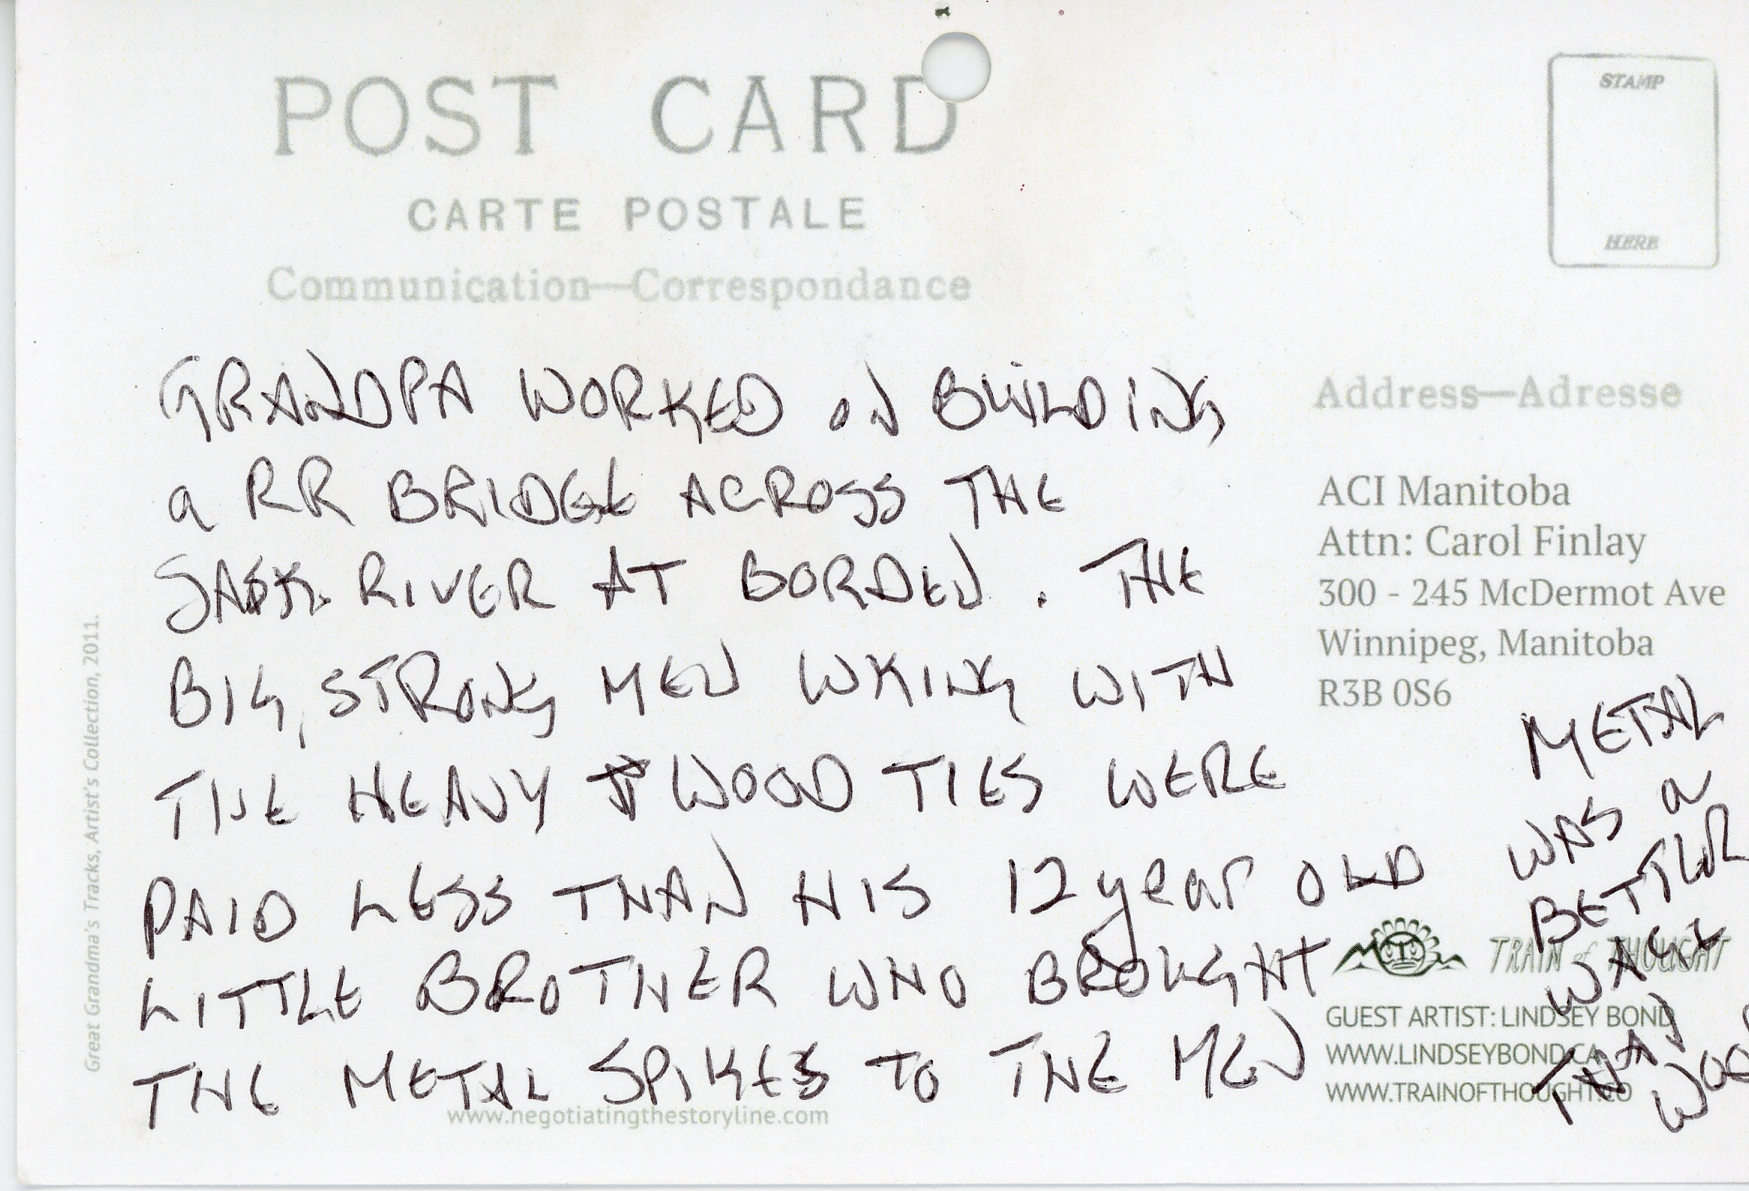 POST CARD
CARTE POSTALE
Communication—Correspondance
STAMP
HERE
GRANDPA WORKED ON BUILDING
a RR BRIDGE ACROSS THE
SASK. RIVER AT BORDEN. THE
BIG, STRONG MEN WKING WITH
THE HEAVY WOOD TIES WERE
PAID LESS THAN HIS 12 year OLD
LITTLE BROTHER WHO BROUGHT
THE METAL SPIKES TO THE MEN
METAL
WAS a
BETTER
WAGE
THAN
Address—Adresse
ACI Manitoba
Attn: Carol Finlay
300 - 245 McDermot Ave
Winnipeg, Manitoba
R3B 0S6
TRAIN of THOUGHT
GUEST ARTIST: LINDSEY BOND
WWW.LINDSEYBOND.CA
WWW.TRAINOFTHOUGHT.CO
www.negotiatingthestoryline.com
Great Grandma's Tracks, Artist's Collection, 2011.